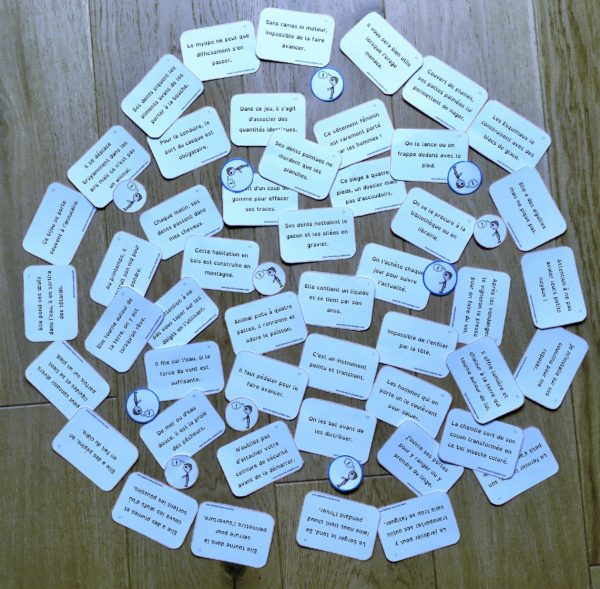 Sans rames ni moteur,
impossible de la faire
avancer.
Le myope ne peut que
difficilement s'en
passer.
Il vous sera bien utile
lorsque l'orage
menace.
Ses dents piquent les
aliments avant de les
porter à la bouche.
Couvert de plumes,
ses pattes palmées lui
permettent de nager.
Les Esquimaux le
construisent avec des
blocs de glace.
Dans ce jeu, il s'agit
d'associer des
quantités identiques.
Pour la conduire, le
port du casque est
obligatoire.
Ce vêtement féminin
est rarement porté
par les hommes !
On le lance ou on
frappe dedans avec le
pied.
Ses dents pointues ne
mordent que les
planches.
Il se déplace
bruyamment dans les
airs mais ce n'est pas
un animal.
Ce siège a quatre
pieds, un dossier mais
pas d'accoudoirs.
d'un coup de
gomme pour effacer
ses traces.
Elle a des aiguilles
mais ne pique pas.
Ce bijou se porte
souvent à l'annulaire.
Chaque matin, ses
dents passent dans
mes cheveux.
Ses dents nettoient le
gazon et les allées en
gravier.
On se le procure à la
bibliothèque ou en
librairie.
Au printemps, il
son
Cette habitation en
bois est construite en
montagne.
On l'achète chaque
jour pour suivre
l'actualité.
Attention à ne pas
avaler leurs petits
noyaux !
Elle pond ses œufs
dans l'eau, il en sortira
des têtards.
Elle tourne autour de
la terre, on y est
lorsqu'on rêve.
Attention à ne
pas vous taper sur les
doigts en l'utilisant.
Elle contient un liquide
et se tient par son
anse.
Après les vendanges,
le vigneron le presse
pour en faire du vin.
Animal poilu à quatre
pattes, il ronronne et
adore le poisson.
Impossible de l'enfiler
par la tête.
Il file sur l'eau, si la
force du vent est
suffisante.
C'est un instrument
pointu et tranchant.
Il offre lumière et
chaleur à la terre qui
tourne autour de lui.
Il faut pédaler pour le
faire avancer.
Les hommes qui en
porte un le soulèvent
pour saluer.
De mer ou d'eau
douce, il est la proie
des pêcheurs.
On les bat avant de
les distribuer.
La chenille sort de son
cocon transformée en
ce bel insecte coloré.
N'oubliez pas
d'attacher votre
ceinture de sécurité
avant de la démarrer.
J'ouvre ses portes
pour y ranger ou y
prendre du linge.
Elle a des plumes et
couve les œufs d'où
sortent les poussins.
Elle tourne dans la
serrure pour
permettre l'ouverture.
Le berger le tond. Sa
laine nous tient chaud
pendant l'hiver.
Le jardinier peut y
transporter ses outils
sans trop se fatiguer.